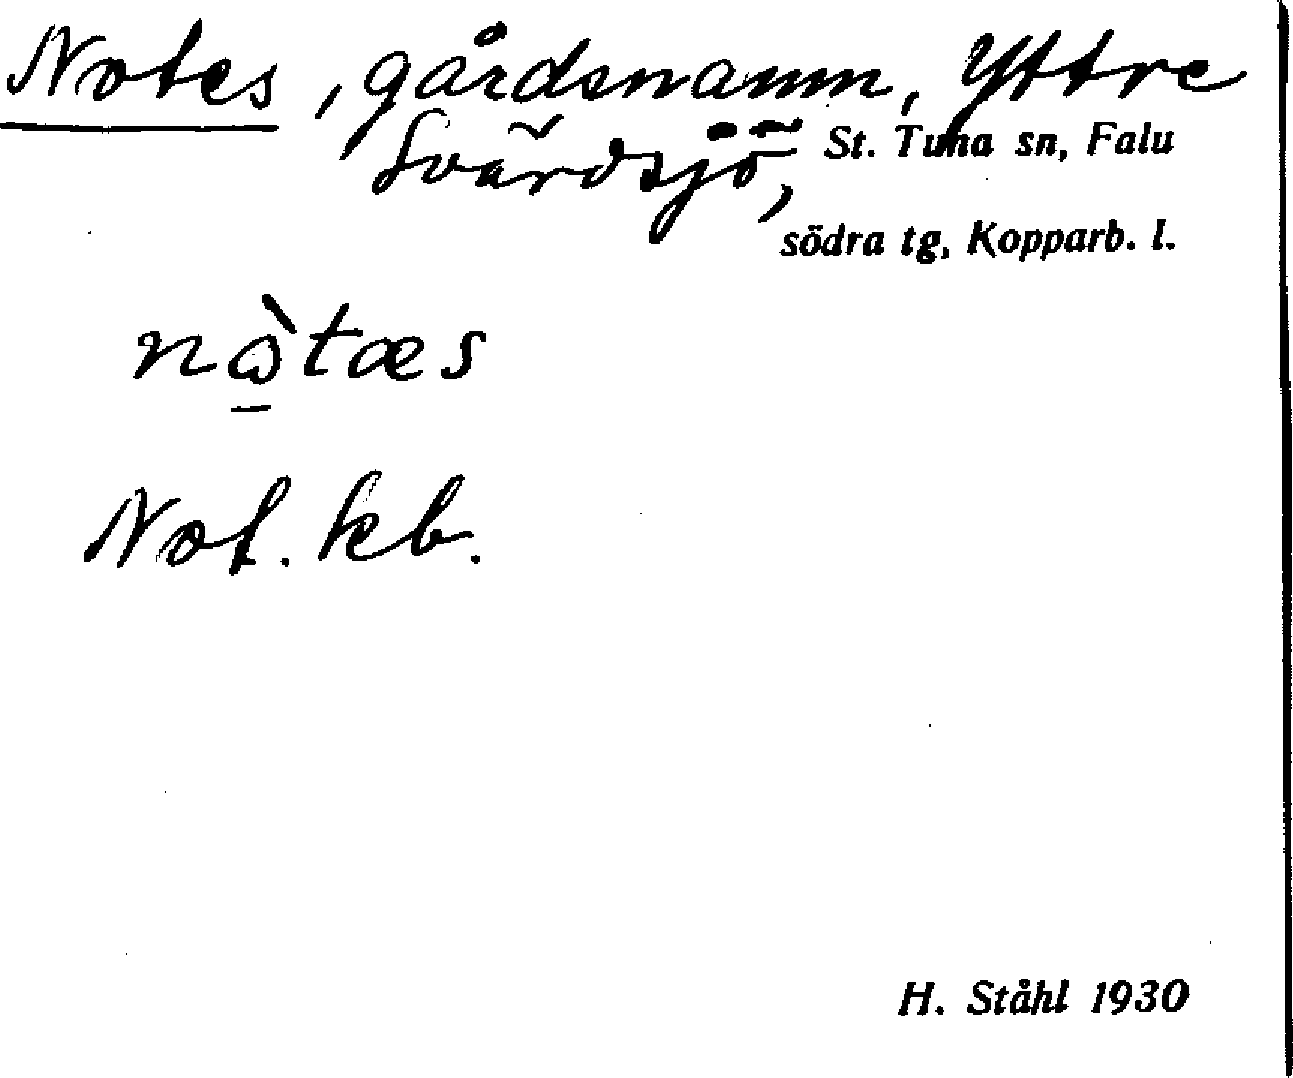 Notes, gårdsnamn, Yttre
Svärdsjö, St. Tuna sn, Falu
södra tg, Kopparb. l.
nɷ̠̀tæs
Not. kb.
H. Ståhl 1930